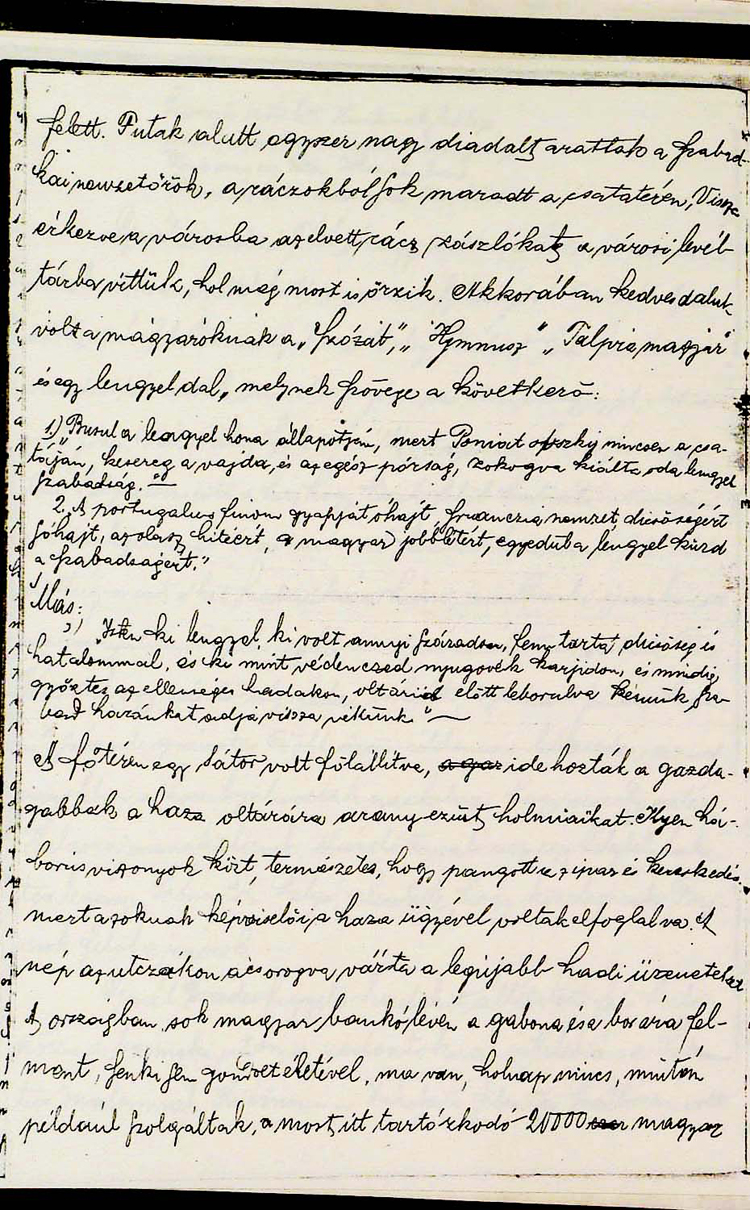 felett. Futak alatt egyszer nagy diadalt arattak a szabad-
kai nemzetőrök, a ráczokból sok maradt a csatatéren, Vissza
érkezve a városba az elvett rácz zászlókat a városi levél-
tárba vittük, hol még most is őrzik. Akkorában kedves daluk
volt a magyaroknak a „Szózat”, „Hymnusz” „Talpra magyar”
és egy lengyel dal, melynek szövege a következő:
1) „Busul a lengyel hona állapotján, mert Poniatofszky nincsen a csa-
táján, kesereg a vajda, és az egész pórság, zokogva kiálta oda lengyel
szabadság. –
2. A portugallus finom gyapját óhajt franczia nemzet dicsőségért
sóhajt, az olasz hitéért, a magyar jobblétért, egyedül a lengyel küzd
a szabadságért.”
Más:
1) „Isten ki lengyel, ki volt annyi századon, fenn tarta dicsőség és
hatalommal, és ki mint védenczed nyugovék karjidon, és mindig
győztes az ellenséges hadakon, oltárid előtt leborulva kérünk sza-
bad hazánkat adja vissza nékünk” –
A főtéren egy sátor volt fölállítva, ide hozták a gazda-
gabbak a haza oltárára arany ezüst holmiaikat. Ilyen há-
borús viszonyok közt, természetes, hogy pangott az ipar és kereskedés
mert azoknak képviselői a haza ügyével voltak elfoglalva. A
nép az utczákon ácsorogva várta a legújabb hadi üzeneteket
Az országban sok magyar bankó lévén a gabona és a bor ára fel-
ment, senki sem gondolt életével, ma van, holnap nincs, miután
például szolgáltak, a most itt tartózkodó 20000 magyar